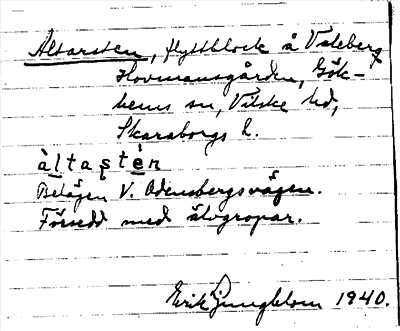 Altarsten, flyttblock å Valeberg
Hovmansgården, Gök-
hems sn, Vilske hd,
Skaraborgs l.
àltaʂtèn
Belägen V. Odensbergsvägen.
Försedd med älvgropar.
Erik Ljungblom 1940.